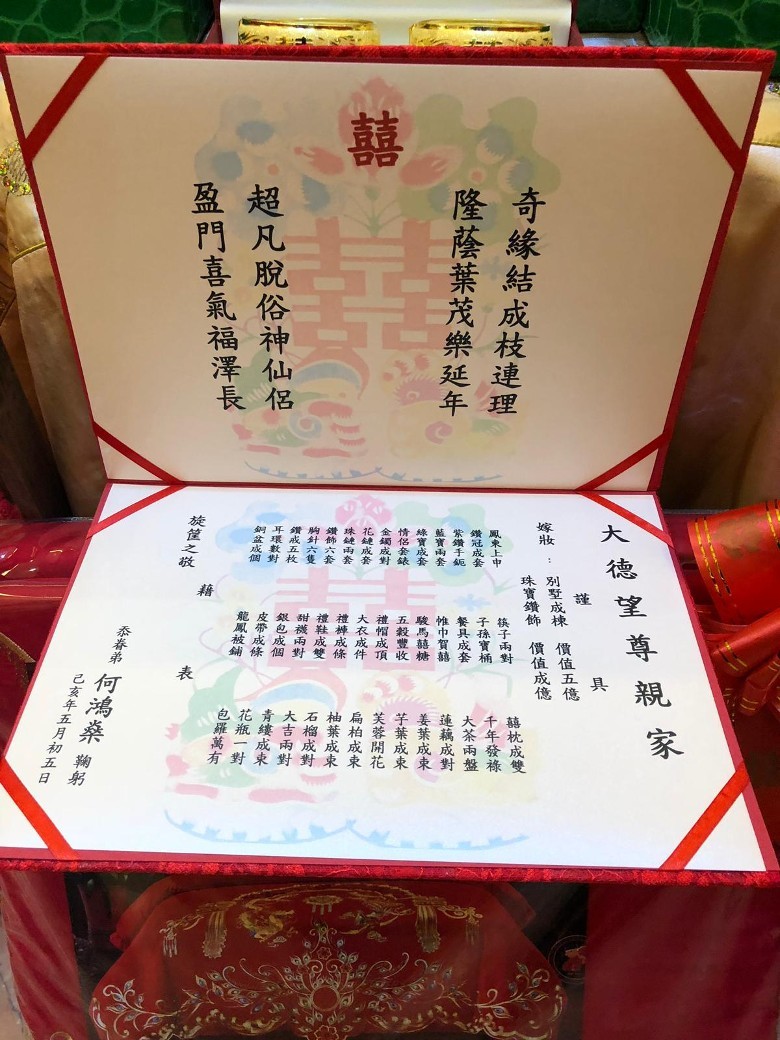 囍
奇緣結成枝連理
隆蔭葉茂樂延年
超凡脫俗神仙侶
盈門喜氣福澤長
大德望尊親家
謹具
嫁妝：別墅成棟 價值五億
珠寶鑽飾 價值成億
鳳束上申
鑽冠成套
紫鑽手鈪
藍寶兩套
綠寶成套
情侶套錶
金鐲成對
花鏈成套
珠鏈兩套
鑽飾六套
胸針六隻
鑽戒五枚
耳環數對
銅盆成個
筷子兩對
子孫寶桶
餐具成套
惟巾賀囍
駿馬囍糖
五穀豐收
禮帽成頂
大衣成件
禮褲成條
禮鞋成雙
甜襪兩對
銀包成個
皮帶成條
龍鳳被鋪
囍枕成雙
千年發祿
大茶兩盤
蓮藕成對
姜葉成束
芋葉成束
芙蓉開花
扁柏成束
柚葉成束
石榴成對
大吉兩對
青縷成束
花瓶一對
包羅萬有
旋筐之敬 藉表
忝眷弟 何鴻燊 鞠躬
己亥年五月初五日